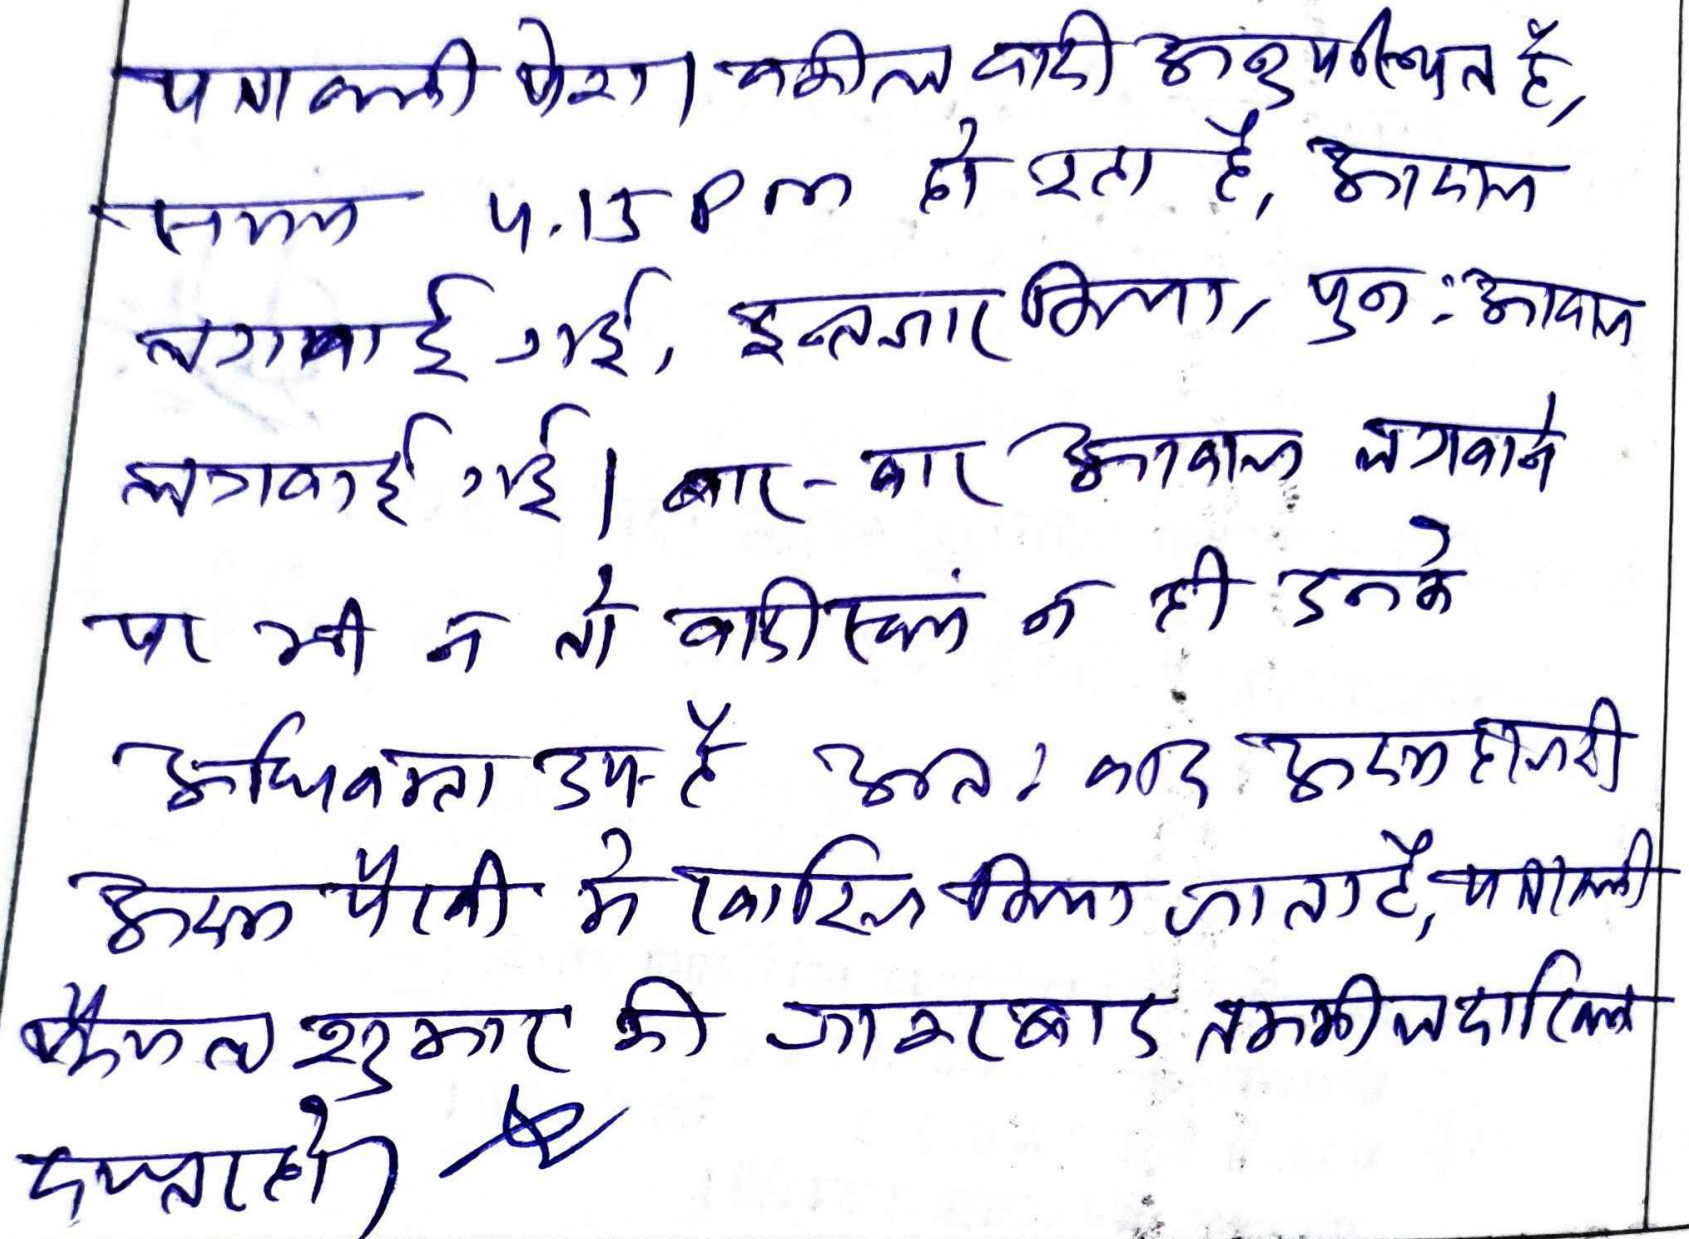 पत्रावली पेश। वकील वादी अनुपस्थित है,
समय 4.15 PM हो रहा है, आवाज
लगवाई गई, इन्तजार किया, पुनः आवाज
लगवाई गई। बार-बार आवाज लगवाने
पर भी न तो वादी स्वयं न ही उनके
अधिवक्ता उप. है अतः वाद अदम हाजरी
अदम पैरवी मे खारिज किया जाता है, पत्रावली
फैसल शुमार की जाकर बाद तकमील दाखिल
दफ्तर हो।